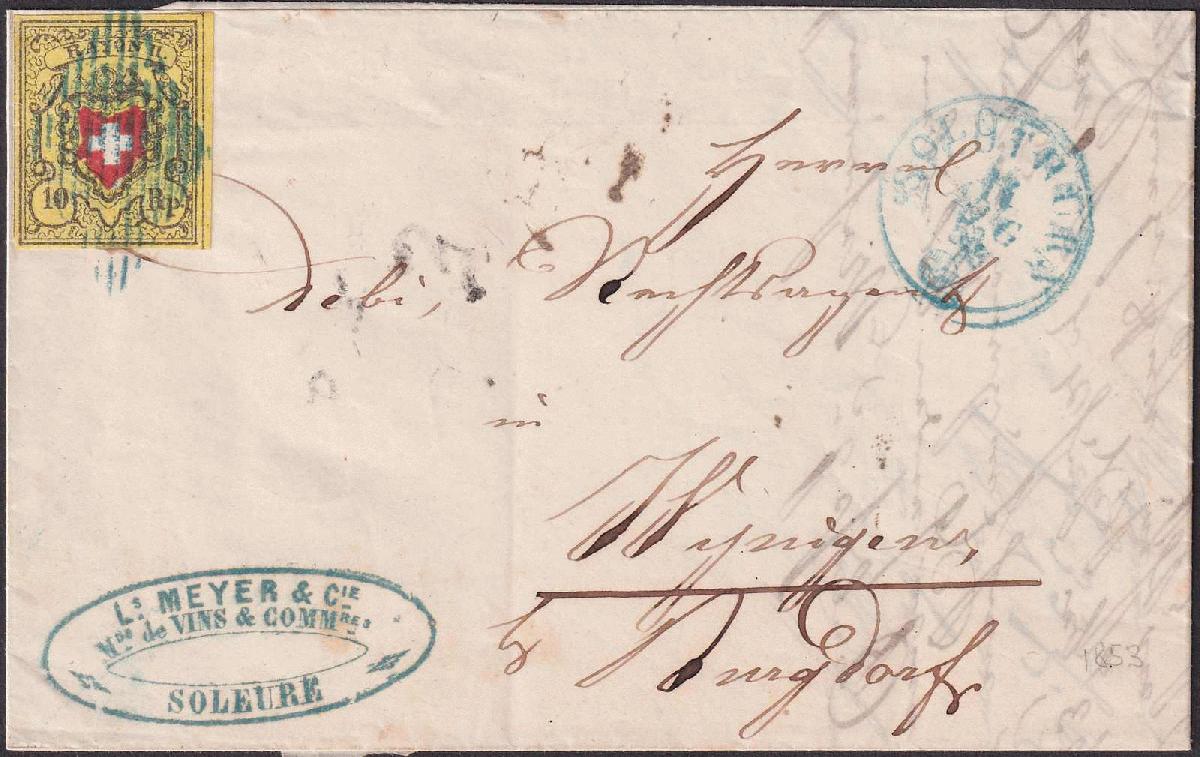 RAYON II.
10 Rp.
SOLOTHURN
Herrn
Aebi, Rechtsagent
in
Wynigen,
b Burgdorf
Ls MEYER & CIE
Mds de VINS & COMMRES
SOLEURE
1853